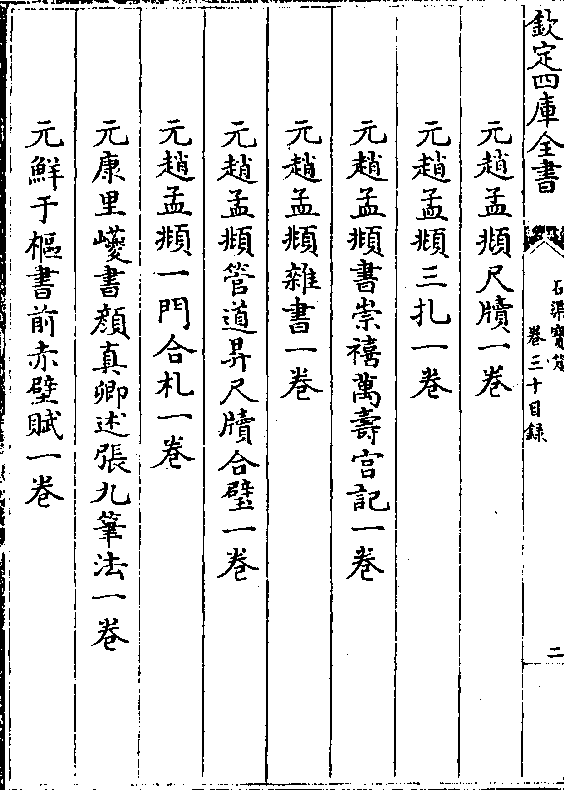 欽定四庫全書
石渠寶笈
卷三十目録
二
元趙孟頫尺牘一卷
元趙孟頫三扎一卷
元趙孟頫書崇禧萬壽宮記一卷
元趙孟頫雜書一卷
元趙孟頫管道昇尺牘合璧一卷
元趙孟頫一門合札一卷
元康里巙書顔真卿述張九筆法一卷
元鮮于樞書前赤壁賦一卷